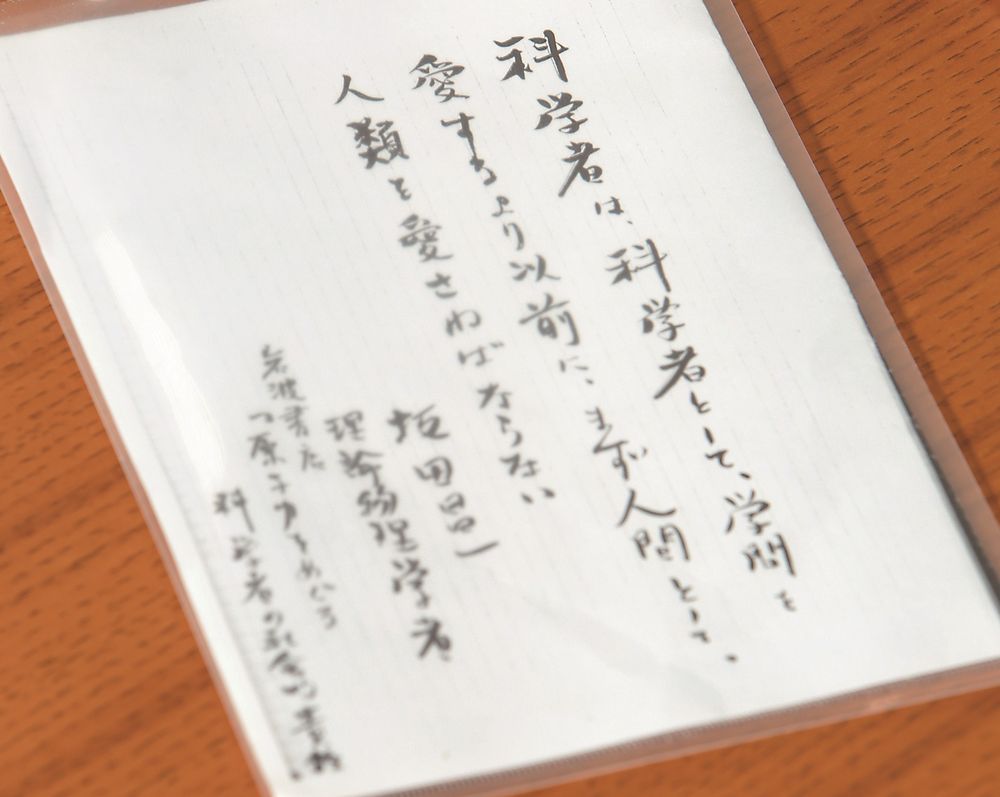 科学者は、科学者として、学問を
愛するより以前に、まず人間として、
人類を愛さねばならない
坂田昌一
理論物理学者
岩波書店
原子力をめぐる
科学者の社会的責任